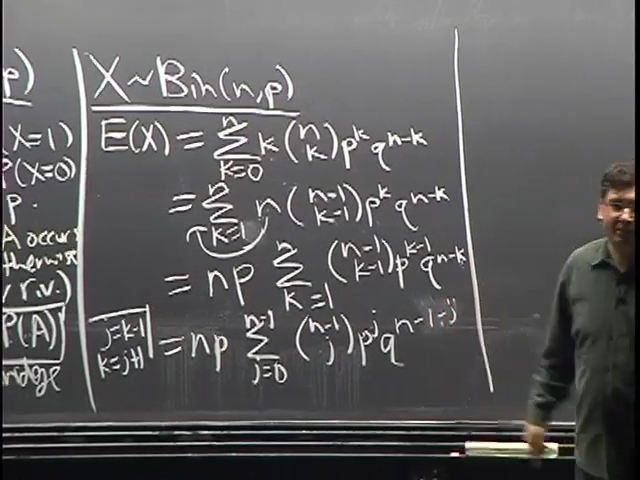 p)
(X=1)
P(X=0)
p.
A occurs
(X)
P(A)
X~Bin(n,p)
E(X) = Σ_{k=0}^{n} k (n k) p^k q^{n-k}
= Σ_{k=1}^{n} n (n-1 k-1) p^k q^{n-k}
= np Σ_{k=1}^{n} (n-1 k-1) p^{k-1} q^{n-k}
j=k-1
k=j+1
= np Σ_{j=0}^{n-1} (n-1 j) p^j q^{n-1-j}